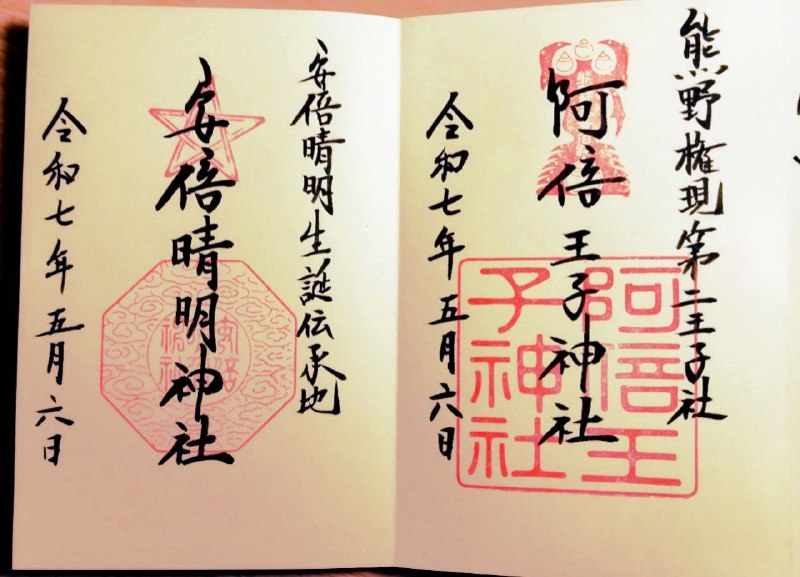 熊野権現第二王子社
阿倍王子神社
令和七年五月六日
阿倍王
子神社
安倍晴明生誕伝承地
安倍晴明神社
令和七年五月六日